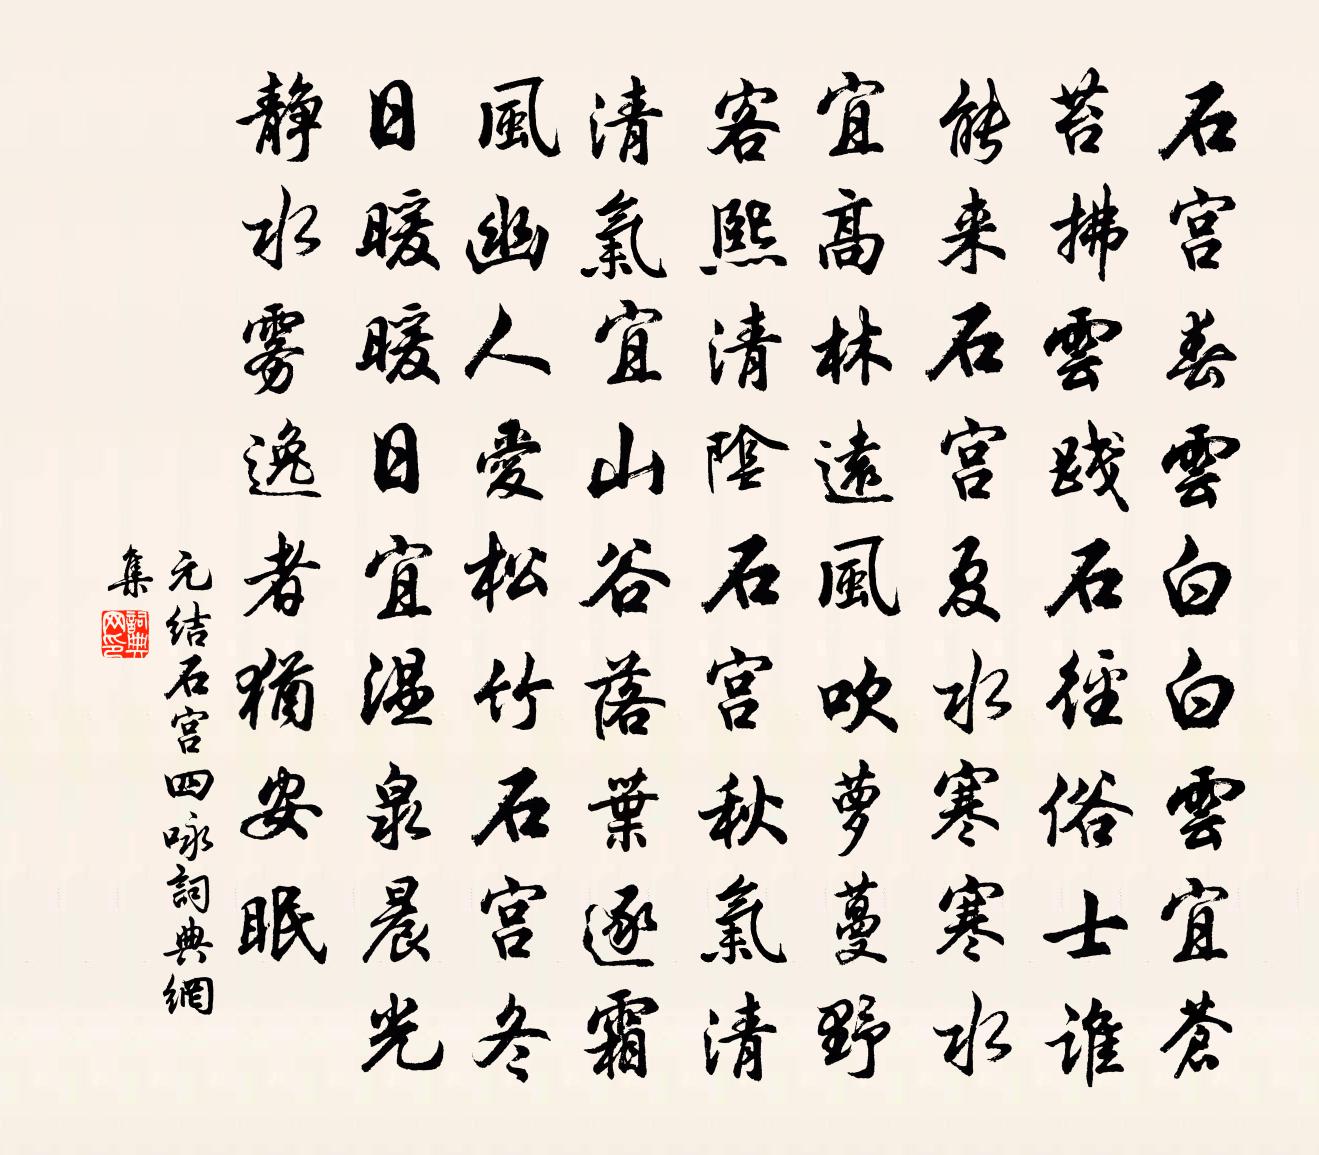 石宫春雲白白雲宜蒼
苔拂雲踐石徑俗士誰
能来石宫夏水寒寒水
宜高林遠風吹萝蔓野
客熙清陰石宫秋氣清
清氣宜山谷落葉逐霜
風幽人愛松竹石宫冬
日暖暖日宜温泉晨光
静水雾逸者猶安眠
元结石宫四咏詞典網
集
詞典网印